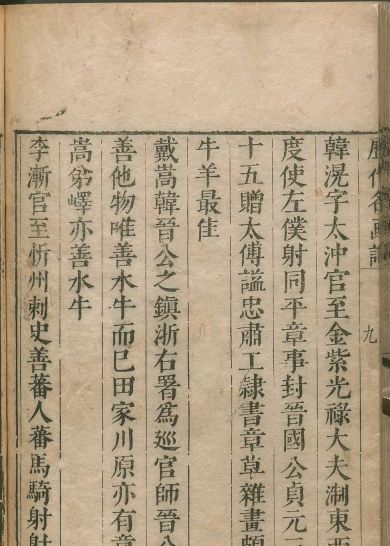 歷代名畫記
九
韓滉字太沖官至金紫光祿大夫淛東西
度使左僕射同平章事封晉國公貞元三
十五贈太傅謚忠肅工隸書章草雜畫頗
牛羊最佳
戴嵩韓晉公之鎮浙右署爲廵官師晉公
善他物唯善水牛而巳田家川原亦有意
嵩弟嶧亦善水牛
李漸官至忻州刺史善蕃人蕃馬騎射射